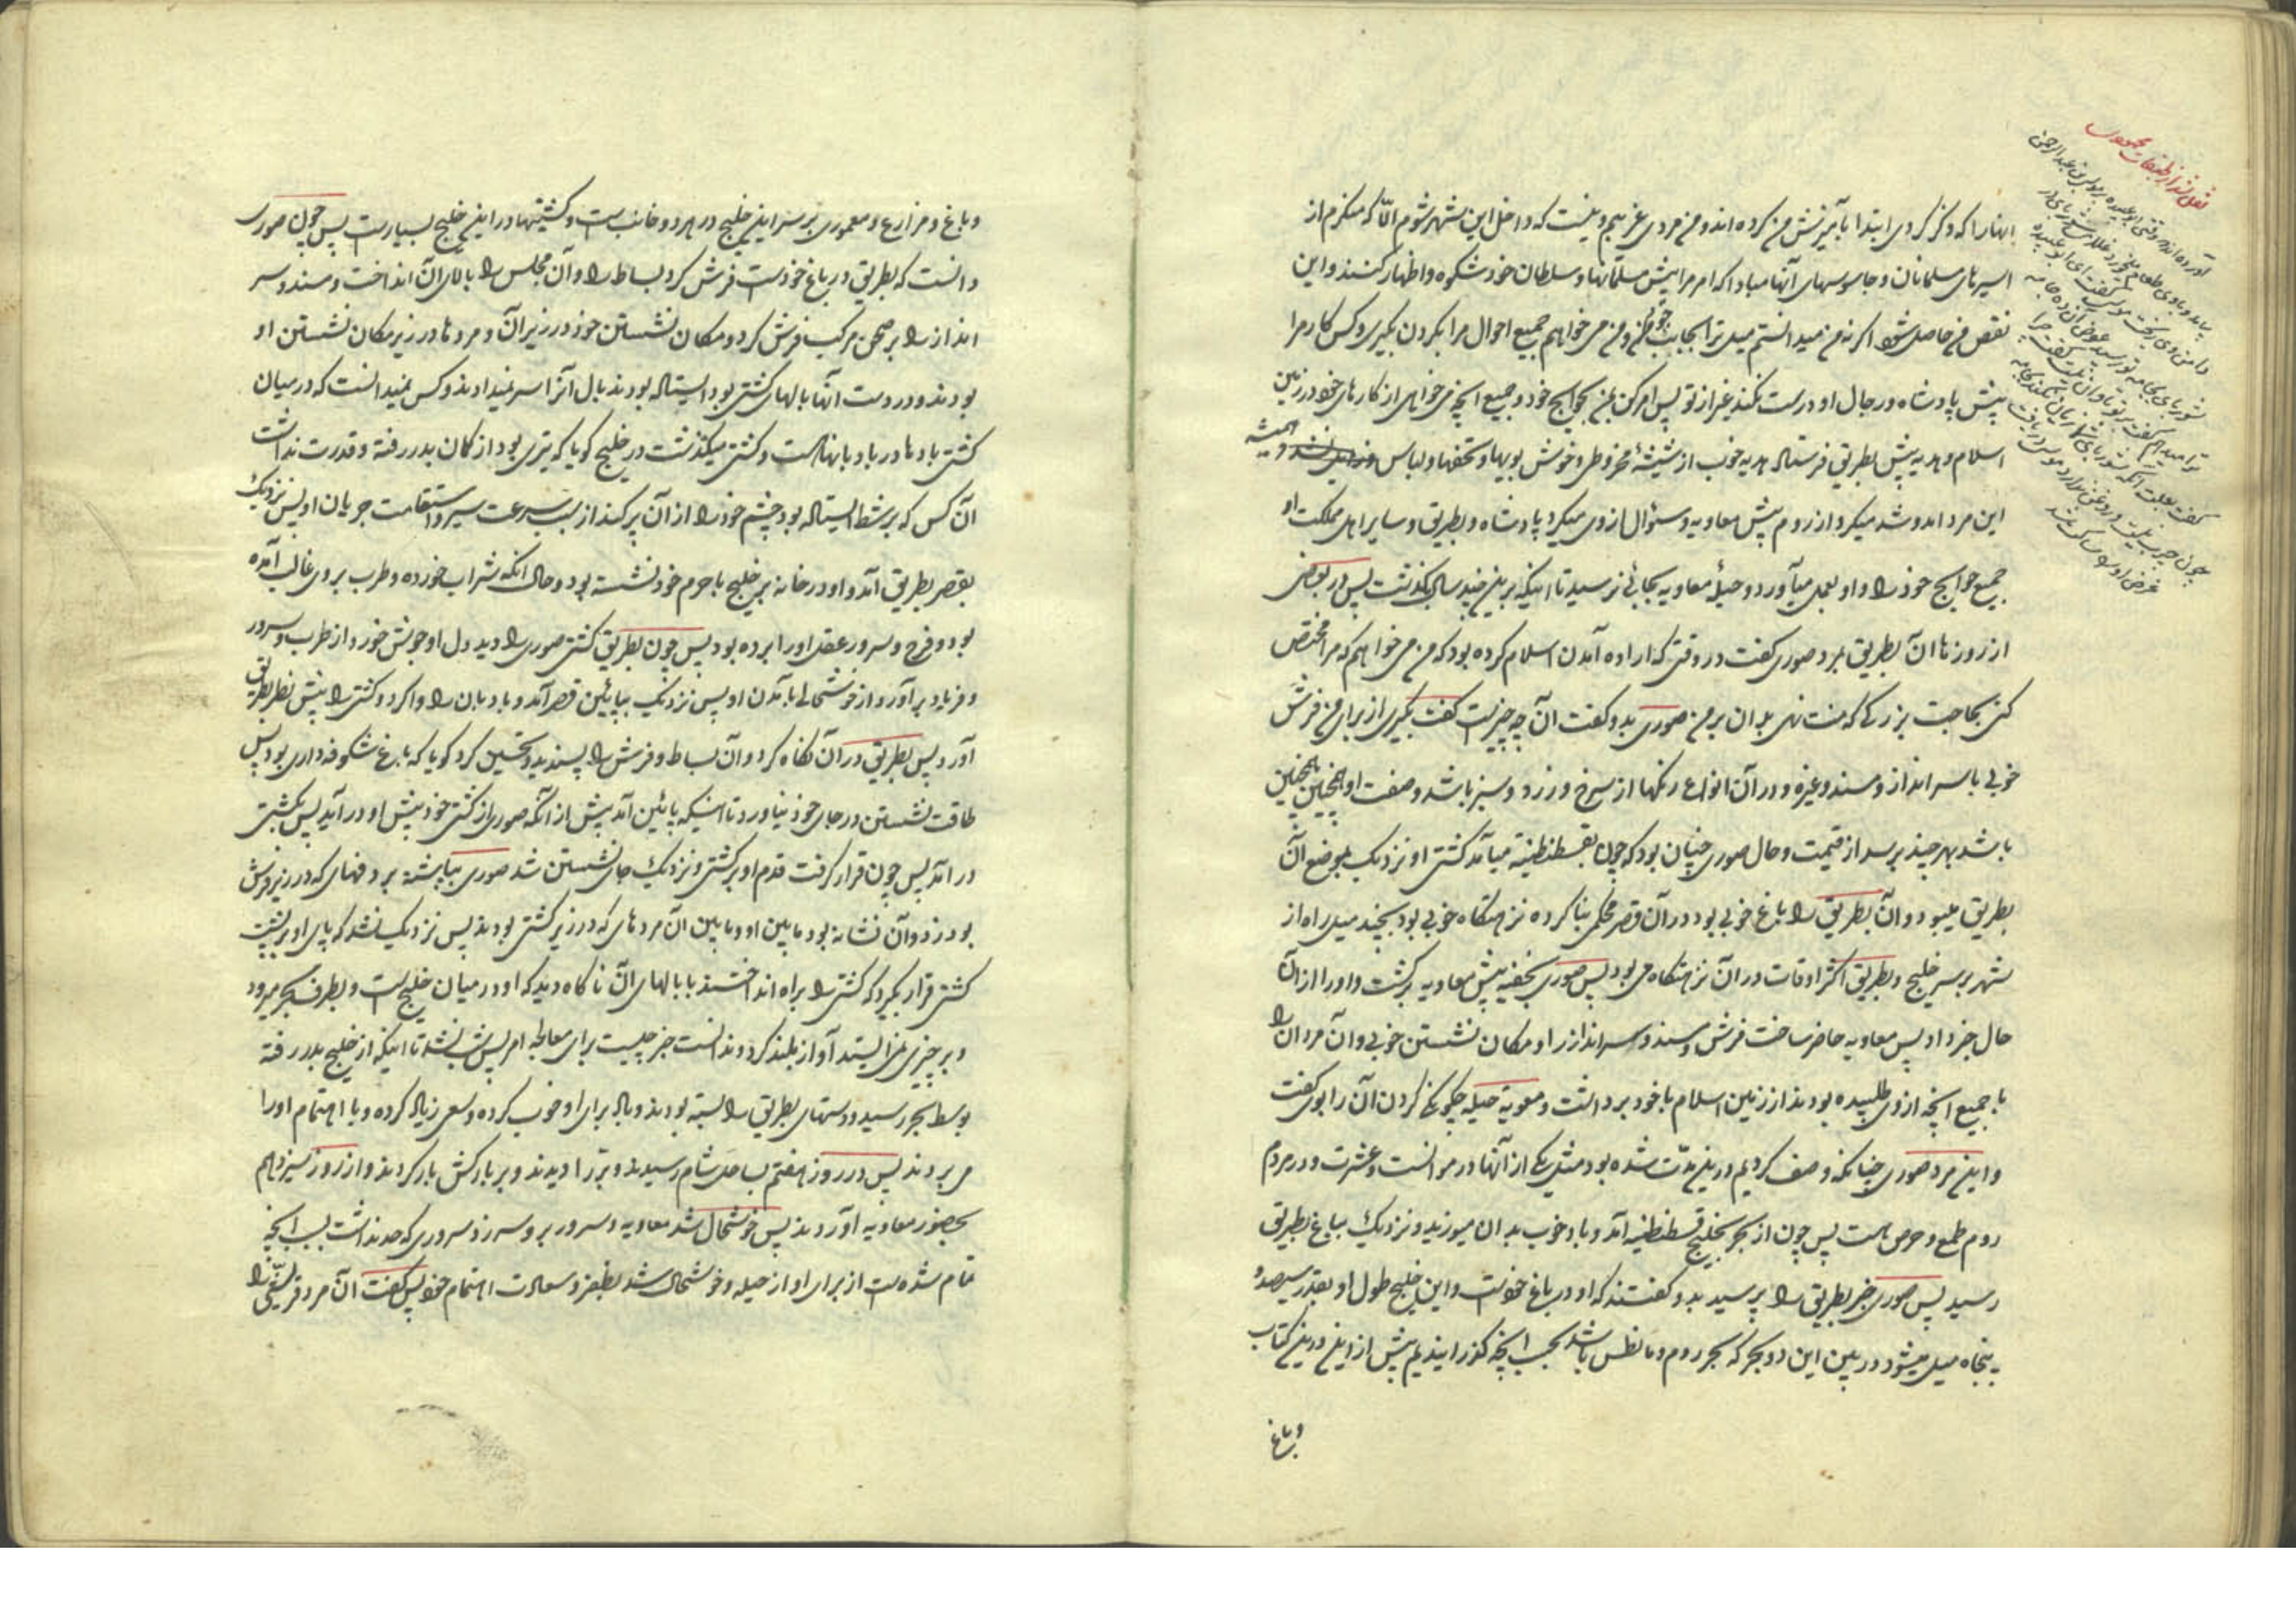 اینها را که ذکر کردی ابتدا بآمیزش من کرده اند و من مردی غریبم و نیست که داخل این شهر شوم الّا که میگذرم از
اسیرهای مسلمانان و جاسوسهای آنها مبادا که امر مرا پیش مسلمانها و سلطان خود شکوه و اظهار کنند و این
نقص من حاصل شود اگر نه من میدانستم میل ترا بجانب خود من و من می خواهم جمیع احوال مرا بکردن بگیری و کس کار مرا
پیش پادشاه و رجال او درست نکند غیر از تو پس امر کن بمن بحوایج خود و جمیع آنچه می خواهی از کارهای خود در زمین
اسلام و هدیه پیش بطریق فرستاد هدیه خوب از شیشهٔ مخروط و خوش بویها و تحفها و لباس و همیشه
این مرد آمد و شد میکرد از روم پیش معاویه و سؤال از وی میکرد پادشاه و بطریق و سایر اهل مملکت او
جمیع حوایج خود را و او بعمل میآورد و حیلهٔ معاویه بجائی نرسید تا اینکه برین چند سال بگذشت پس در بعضی
از روزها آن بطریق بمرد صوری گفت در وقتی که اراده آمدن اسلام کرده بود که من می خواهم که مرا مختص
کنی بحاجت بزرگی که منت نهی بدان بر من صوری بدو گفت آن چه چیزست گفت بگیری از برای من فرش
خوبی با سر انداز و مسند و غیره و در آن انواع رنگها از سرخ و زرد و سبز باشد و صفت او همچنین همچنین
باشد بهر چند برسد از قیمت و حال صوری چنان بود که چون بقسطنطنیه میآمد کشتی او نزدیک بموضع آن
بطریق میبود و آن بطریق را باغ خوبی بود در آن قصر محکمی بنا کرده نزهتگاه خوبی بود بچند میل راه از
شهر بر سر خلیج و بطریق اکثر اوقات در آن نزهتگاه می بود پس صوری بخفیه پیش معاویه برگشت و او را از آن
حال خبر داد پس معاویه حاضر ساخت فرش و مسند و سر انداز را و مکان نشستن خوبی و آن مرد آن را
با جمیع آنچه از وی طلبیده بودند از زمین اسلام با خود برداشت و معویة حیله چگونگی کردن آن را بوی گفت
و این مرد صوری چنانکه وصف کردیم درین مدّت شده بود مثل یکی از آنها در موانست و عشرت و در مردم
روم طمع و حرص هست پس چون از بحر بخلیج قسطنطنیه آمد و باد خوب بدان میوزید و نزدیک بباغ بطریق
رسید پس صوری خبر بطریق را پرسید بدو گفتند که او در باغ خودست و این خلیج طول او بقدر سیصد و
پنجاه میل میشود در بین این دو بحر که بحر روم و مانطس باشد بحسب آنچه گذرانیدیم پیش ازین درین کتاب
و باغ
و باغ و مزارع و معموری بر سر این خلیج در هر دو جانب است و کشتیها در این خلیج بسیارست پس چون صوری
دانست که بطریق در باغ خودست فرش کرد بساط را و آن مجلس را بالای آن انداخت و مسند و سر
انداز را بر صحن مرکب فرش کرد و مکان نشستن خود در زیر آن و مردها در زیر مکان نشستن او
بودند و در دست آنها بالهای کشتی بود ایستاده بودند بال آنرا سر نمیدادند و کس نمیدانست که در میان
کشتی بادها در باد بانهاست و کشتی میگذشت در خلیج گویا که تیری بود از کمان بدر رفته و قدرت نداشت
آن کس که بر شط ایستاده بود چشم خود را از آن پر کند از سبب سرعت سیر و استقامت جریان او پس نزدیک
بقصر بطریق آمد و او در خانه برین خلیج با حرم خود نشسته بود و حال آنکه شراب خورده و طرب بر وی غالب آمده
بود و فرح و سرور عقل او را برده بود پس چون بطریق کشتی صوری را دید دل او جوش خورد از طرب و سرور
و فریاد برآورد از خوشحالی بآمدن او پس نزدیک بپائین قصر آمد و بادبان را وا کرد و کشتی را پیش نظر بطریق
آورد پس بطریق در آن نگاه کرد و آن بساط و فرش را پسندید و تحسین کرد گویا که باغ شکوفه داری بود پس
طاقت نشستن در جای خود نیاورد تا اینکه پائین آمد پیش از آنکه صوری از کشتی خود پیش او در آید پس بکشتی
در آمد پس چون قرار گرفت قدم او بر کشتی و نزدیک جای نشستن شد صوری بپاشنه بر دفهای که در زیر فرش
بود زد و آن نشانه بود مابین او و مابین آن مردهای که در زیر کشتی بودند پس نزدیک نشد که پای او بر پشت
کشتی قرار بگیرد که کشتی را براه انداختند با بالهای آن ناگاه دید که او در میان خلیج است و بطرف بحر میرود
و بر چیزی نمی ایستد آواز بلند کرد و ندانست خبر چیست برای معالجه امر پس شب نشد تا اینکه از خلیج بدر رفته
بوسط بحر رسید و دستهای بطریق را بسته بودند و باد برای او خوب کرده و سعی زیاد کرده و با اهتمام او را
می بردند پس در روز هفتم بساحل شام رسیدند و بر را دیدند و بر بارکش بار کردند و از روز سیزدهم
بحضور معاویه آوردند پس خوشحال شد معاویه و سرور بر وسر زد سروری که حد نداشت بسبب آنچه
تمام شده است از برای او از حیله و خوشحال شد بظفر و سعادت اهتمام خود پس گفت آن مرد قریشی را